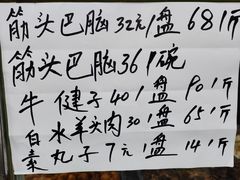 筋头巴脑32元/盘 68/斤
筋头巴脑36/碗
牛健子40/盘 90/斤
白水羊头肉30/盘 65/斤
素丸子7元/盘 14/斤